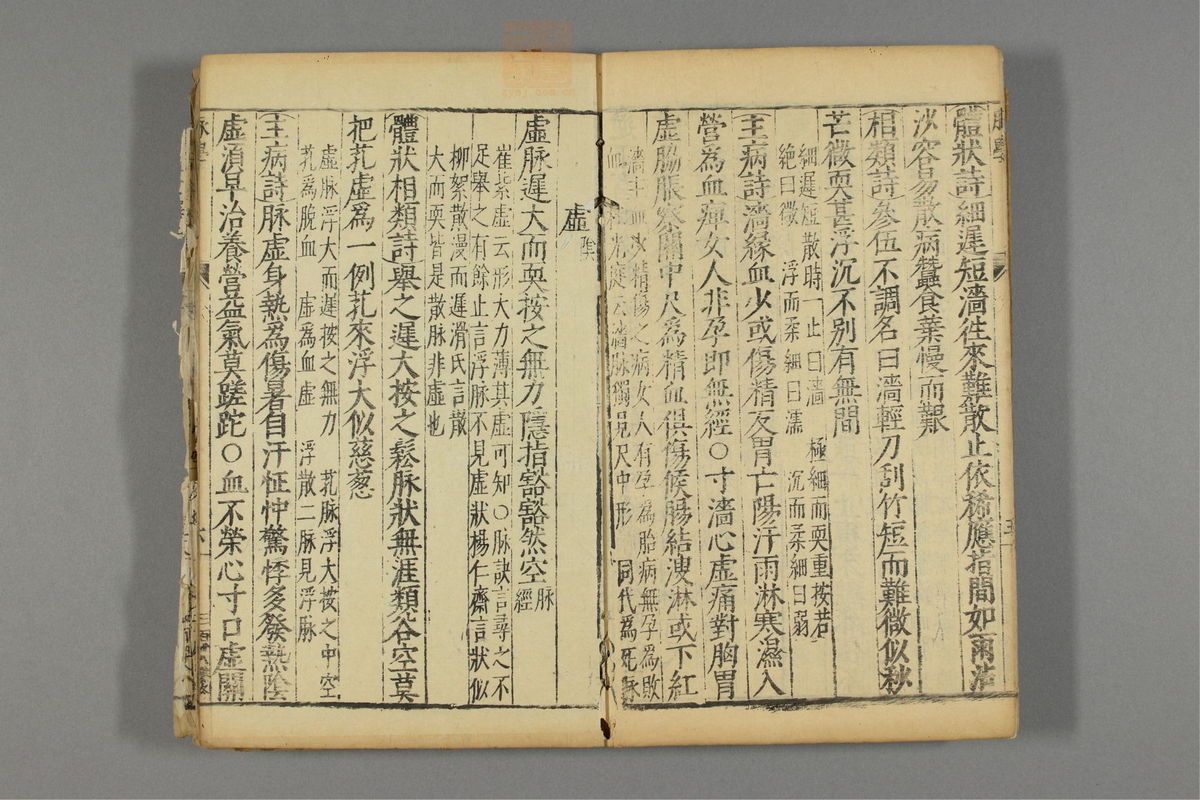 體狀詩細遲短濇往來難散止依稀應指間如雨沾
沙容易散病蠶食葉慢而艱
相類詩參伍不調名曰濇輕刀刮竹短而難微似秒
芒微耎甚浮沉不別有無間
細遲短散時一止曰濇 極細而耎重按若
絶曰微 浮而柔細曰濡 沉而柔細曰弱
主病詩濇緣血少或傷精反胃亡陽汗雨淋寒濕入
營爲血痺女人非孕即無經○寸濇心虛痛對胸胃
虛脇脹察關中尺爲精血俱傷候腸結溲淋或下紅
濇主血少精傷之病女人有孕爲胎病無孕爲敗
血 光庭云濇脉獨見尺中形 同代爲死脉
虛 陰
虛脉遲大而耎按之無力隱指豁豁然空 脉經
崔紫虛云形大力薄其虛可知○脉訣言尋之不
足舉之有餘止言浮脉不見虛狀楊仁齋言狀似
柳絮散漫而遲滑氏言散
大而耎皆是散脉非虛也
體狀相類詩舉之遲大按之鬆脉狀無涯類谷空莫
把芤虛爲一例芤來浮大似慈葱
虛脉浮大而遲按之無力 芤脉浮大按之中空
芤爲脫血 虛爲血虛 浮散二脉見浮脉
主病詩脉虛身熱爲傷暑自汗怔忡驚悸多發熱陰
虛須早治養營益氣莫蹉跎○血不榮心寸口虛關